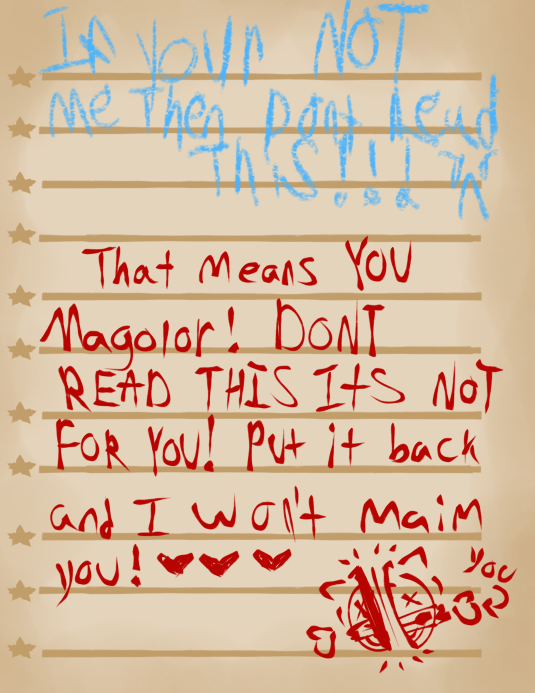 If your NOT
me Then Dont Read
THiS!!!
That means YOU
Magolor! DONT
READ THIS ItS NOT
FOR YOU! Put it back
and I won't maim
you! ♥♥♥
you